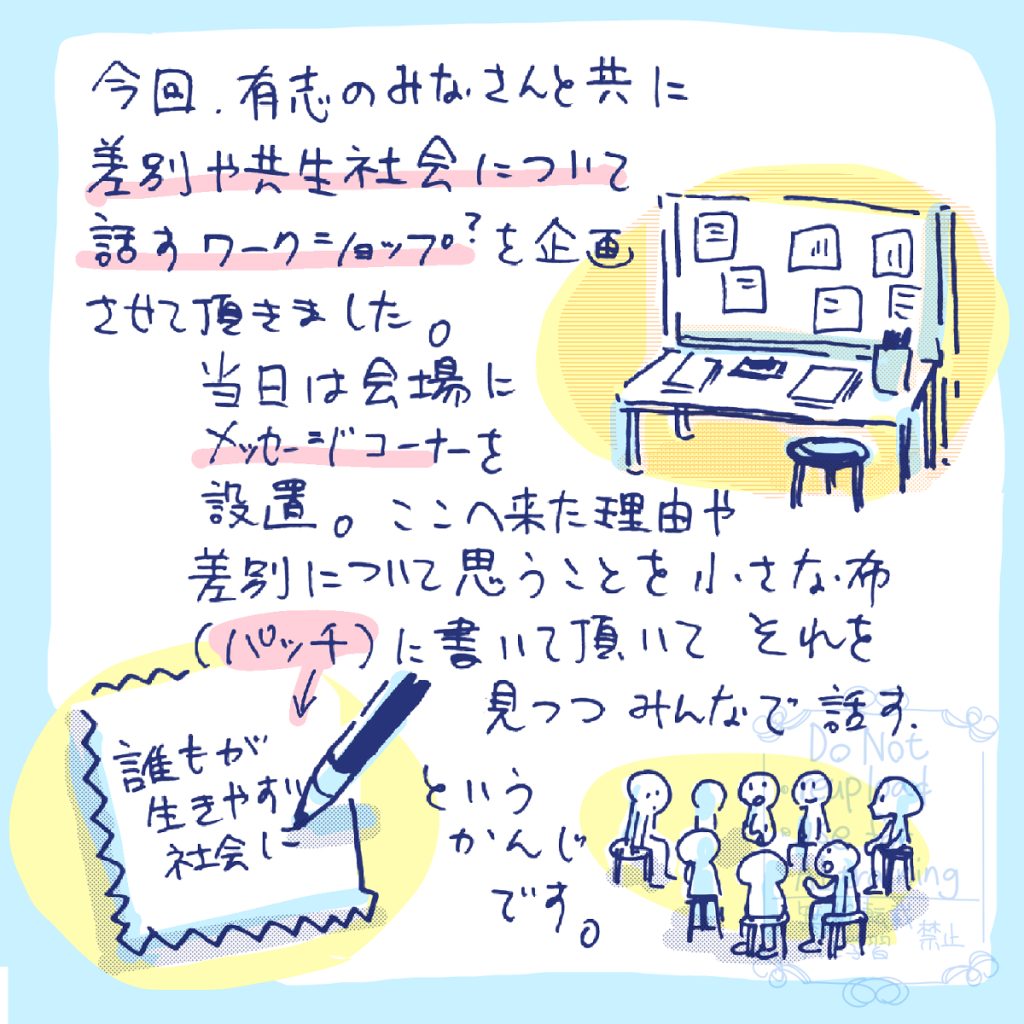 今回、有志のみなさんと共に
差別や共生社会について
話すワークショップ?を企画
させて頂きました。
当日は会場に
メッセージコーナーを
設置。ここへ来た理由や
差別について思うことを小さな布
(パッチ)に書いて頂いて それを
見つつ みんなで話す.
誰もが
生きやすい
社会に
という
かんじ
です。
Do Not
禁止